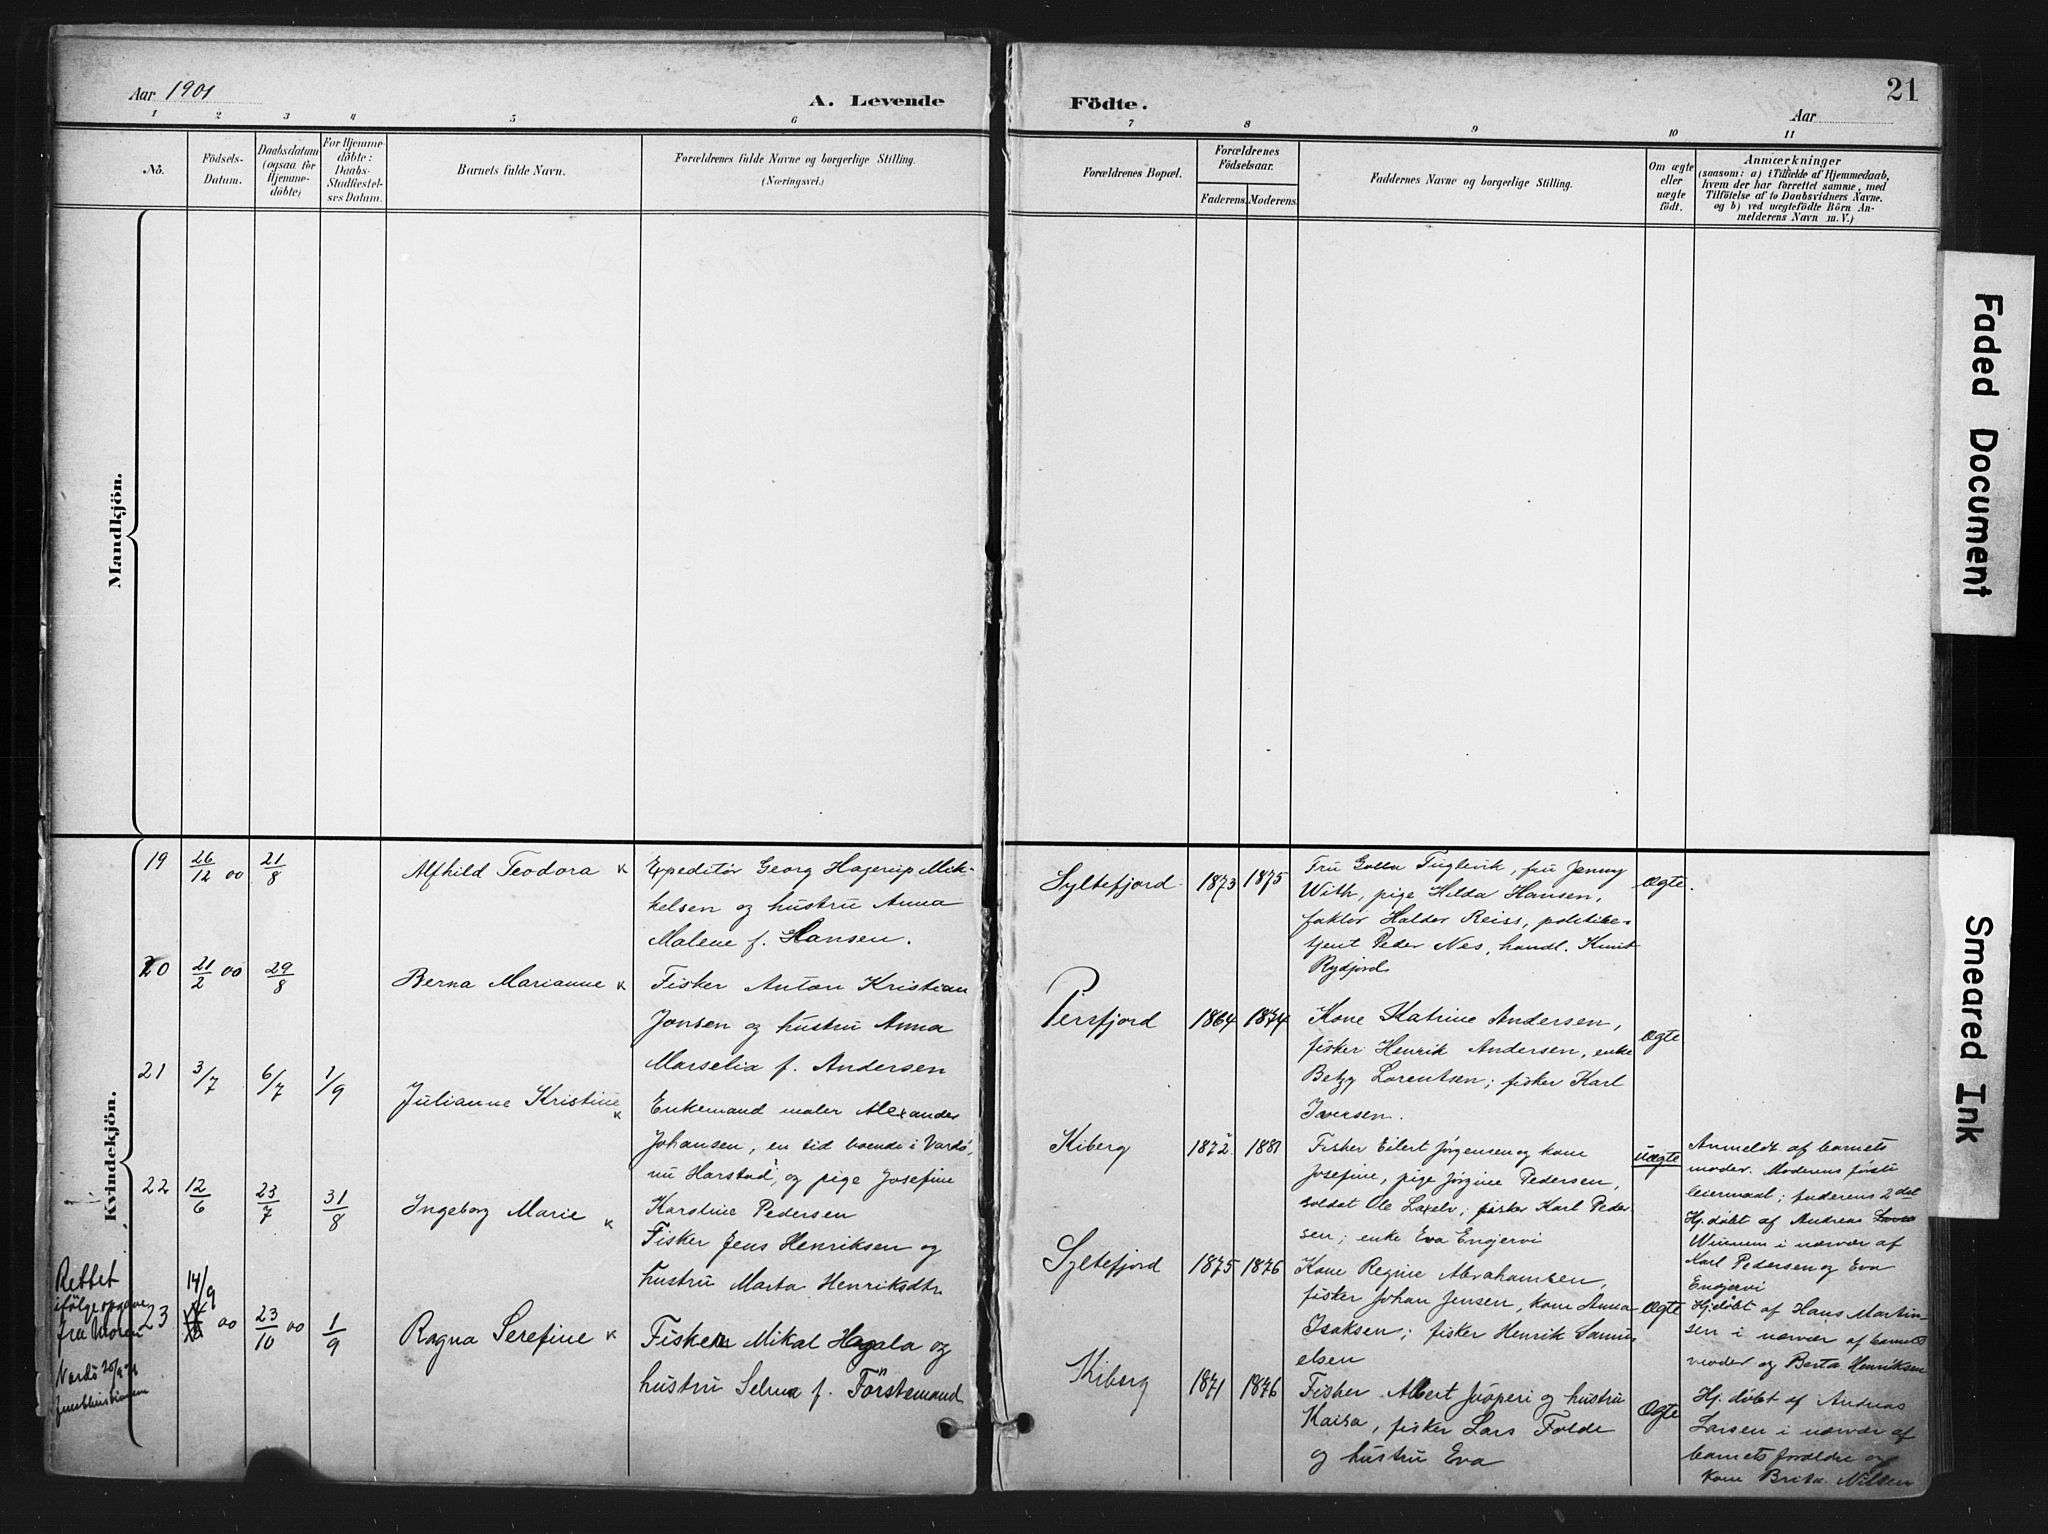 Aar 1901
A. Levende
Födte.
21
Aar
1 2 3 4 5 6 7 8 9 10 11
No.
Födsels-
Datum.
Daabsdatum
(ogsaa for
Hjemme-
döbte)
For Hjemme-
döbte:
Daabs-
Stadfæstel-
ses Datum.
Barnets fulde Navn.
Forældrenes fulde Navne og borgerlige Stilling.
(Næringsvei.)
Forældrenes Bopæl.
Forældrenes
Födselsaar.
Faderens. Moderens.
Faddernes Navne og borgerlige Stilling.
Om ægte
eller
uægte
födt.
Anmærkninger
(saasom: a) i Tilfælde af Hjemmedaab,
hvem der har forrettet samme, med
Tilföielse af to Daabsvidners Navne.
og b) ved uægtefödte Börn An-
melderens Navn m. V.)
Mandkjön.
Kvindekjön.
19
26/12 00
21/8
Alfhild Teodora
Expeditör Georg Hagerup Mik-
kelsen og hustru Anna
Malene f. Hansen.
Syltefjord
1873
1875
Fru Golla , fru Jenny
With, pige Hilda Hansen,
faktör Haldor Reiss, politibe-
tjent Peder Nes, handl. Knut
Rydfjord
Ægte.
20
21/2 00
29/8
Berna Marianne
Fisker Anton Kristian
Jonsen og hustru Anna
Marselia f. Andersen
Persfjord
1864
1874
Kone Katrine Andersen,
fisker Henrik Andersen, enke
Betzy Lorentsen; fisker Karl
Iversen.
Ægte
21
3/7
6/7
1/9
Julianne Kristine
Enkemand maler Alexander
Johansen, en tid boende i Vardö,
nu Harstad, og pige Josefine
Karstine Pedersen
Kiberg
1872
1881
Fisker Eilert Jörgensen og kone
Josefine, pige Jörgine Pedersen,
soldat Ole Laxelv; fisker Karl Peder-
sen; enke Eva Engjervi
uægte
Anmeldt af barnets
moder. Moderens förste
leiermaal; faderens 2det
Hj.döbt af Andreas
Winnem i nærvær af
Karl Pedersen og Eva
Engjervi
22
12/6
23/7
31/8
Ingeborg Marie
Fisker Jens Henriksen og
hustru Marta Henriksdtr.
Syltefjord
1875
1876
Kone Regine Abrahamsen,
fisker Johan Jensen, kone Anna
Isaksen; fisker Henrik Samu-
elsen
Ægte
Hj.döbt af Hans Martin-
sen i nærvær af barnets
moder og Berta Henriksen
Rettet
ifölge opgave
fra Moren
Vardö
23
14/9
00
23/10 00
1/9
Ragna Serefine
Fisker Mikal Hagala og
hustru Selma f. Förstemand
Kiberg
1871
1876
Fisker Albert Juoperi og hustru
Kaisa, fisker Lars Folde
og hustru Eva
Ægte
Hj. döbt af Andreas
Larsen i nærvær af
barnets forældre og
kone Brita Nilsen
Faded Document
Smeared Ink